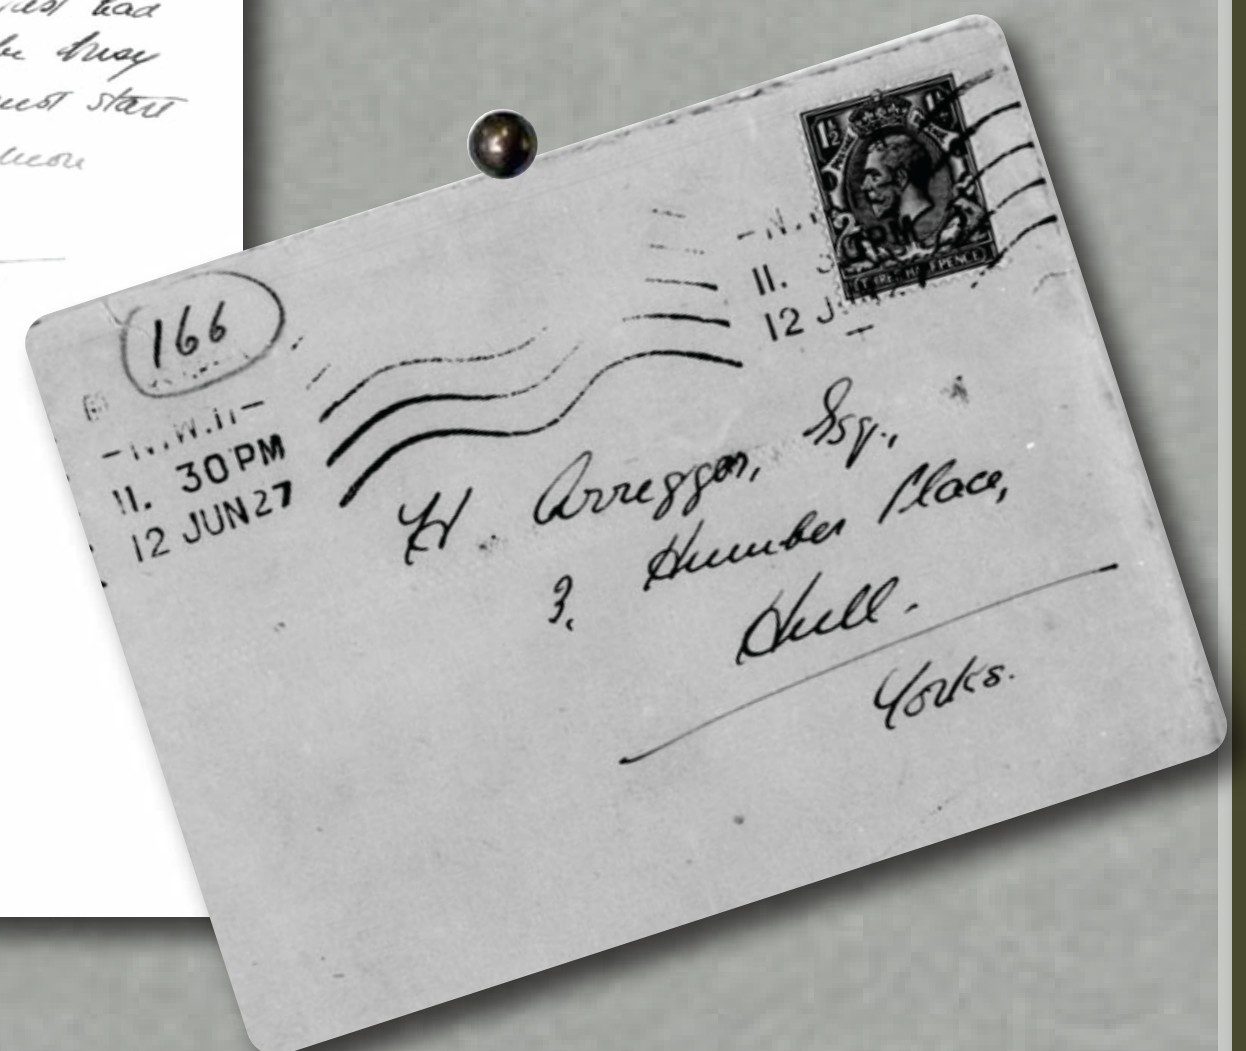 had
be busy
must start
166
11. 30 PM
12 JUN 27
1½
11.
12 J
H Arreggor, Esq.,
3, Humber Place,
Hull.
Yorks.